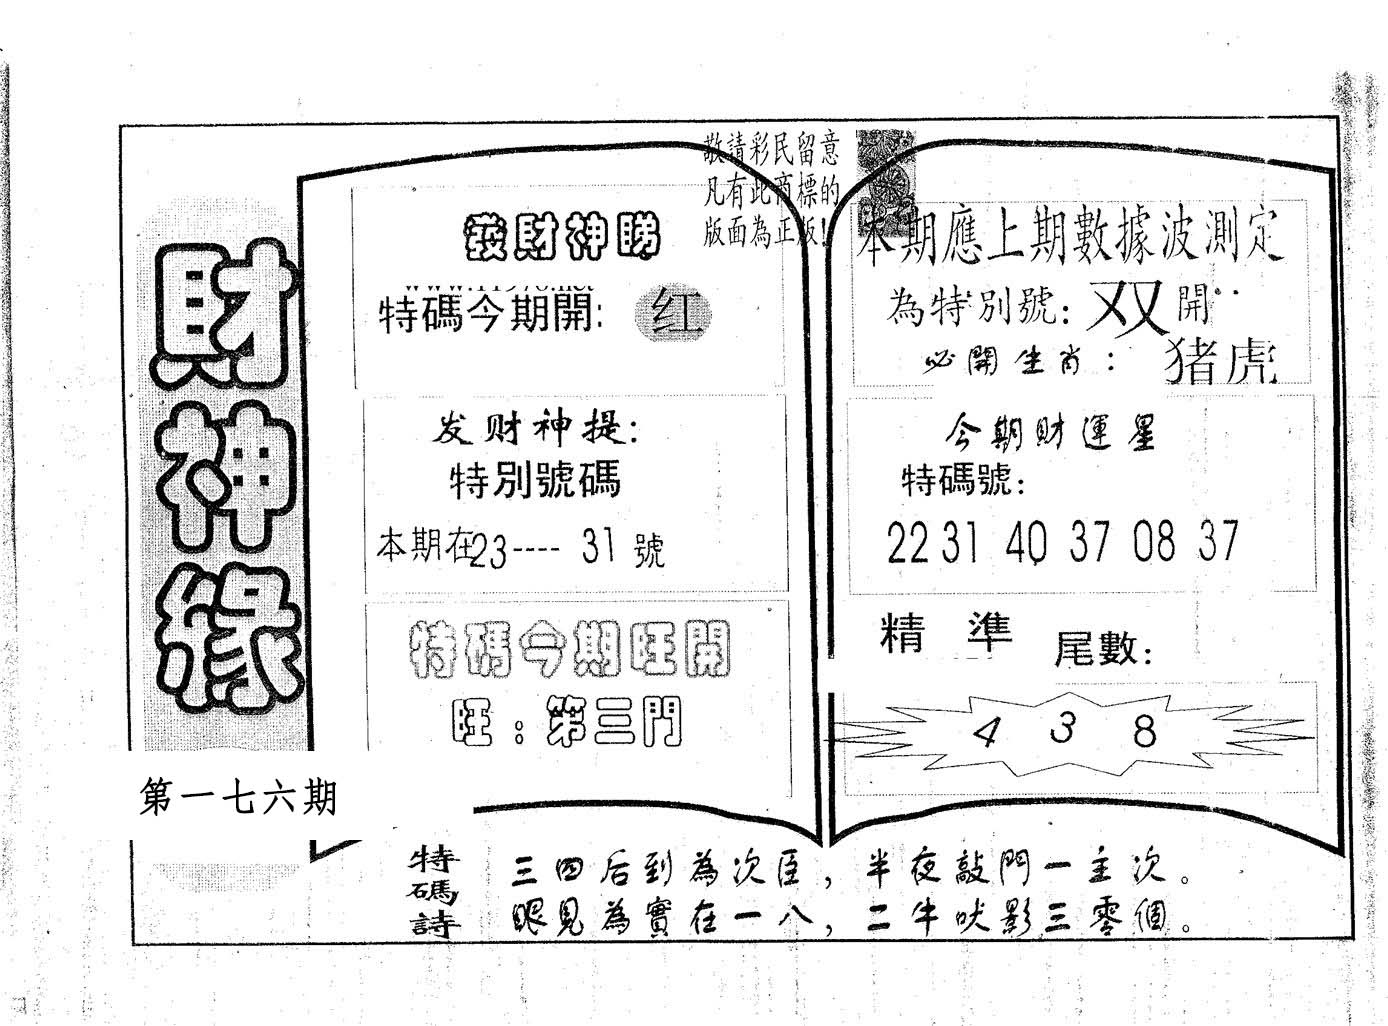 財神緣
第一七六期
敬請彩民留意
凡有此商標的
版面為正版!
發財神睇
特碼今期開:
红
发财神提:
特别號碼
本期在23---- 31 號
特碼今期旺開
旺:第三門
本期應上期數據波測定
為特别號: 双 開
必開生肖: 猪虎
今期財運星
特碼號:
22 31 40 37 08 37
精 準 尾數:
4 3 8
特碼詩
三四后到為次臣,半夜敲門一主次。
眼見為實在一八,二牛吠影三零個。